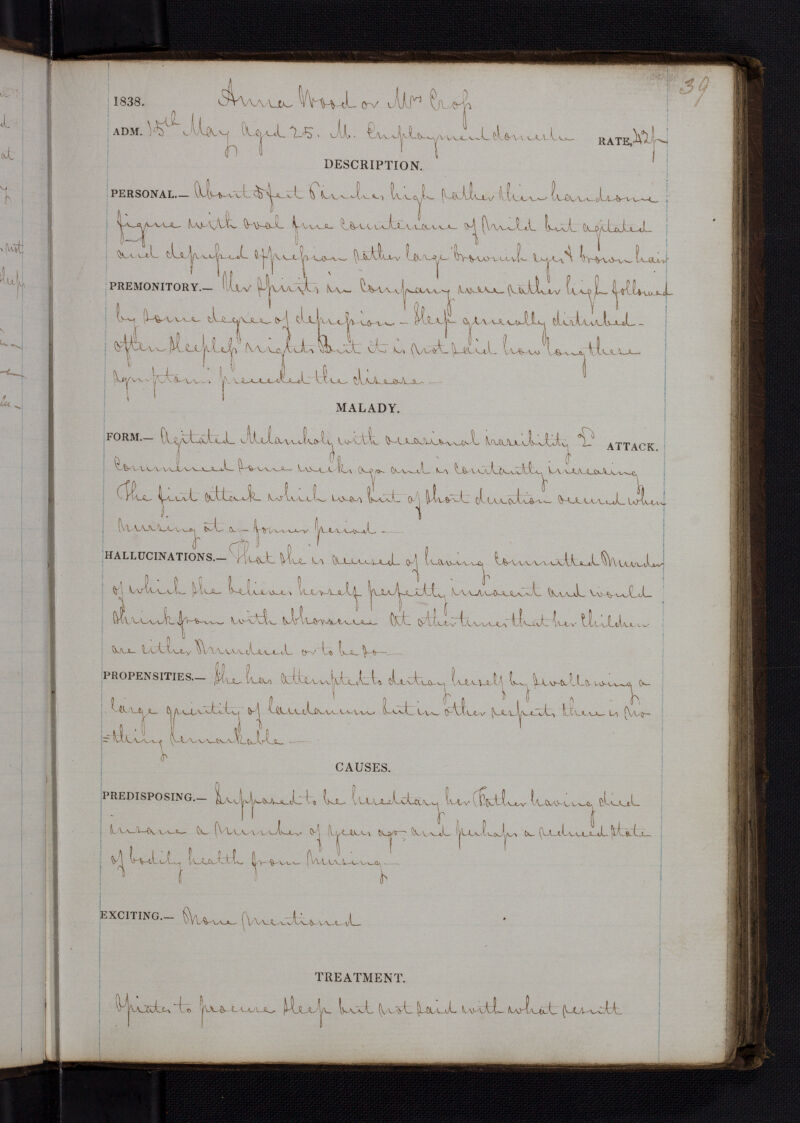 39
1838. Anna Wood or Mrs Crop
ADM. 15th May Aged 25. M. Employment domestic RATE, 42/-
DESCRIPTION.
PERSONAL.— About 5 feet 5 inches high rather thin handsome
figure with oval fine countenance of mild but agitated
and depressed expression rather large brownish eyes & brown hair
PREMONITORY.— Her Spirits in Company were rather high followed
by some degree of depression – Sleep generally disturbed –
often Sleepless nights But it is not said how long these
symptoms preceded the disease —
MALADY.
FORM.— Agitated Melancholy with occasional irascibility 2d ATTACK.
Commenced some weeks ago and is constantly increasing
The first attack which was but of short duration occurred when
Nursing at a former period —
HALLUCINATIONS.— That she is accused of having committed Murder
of which she believes herself perfectly innocent and would
shrink from with abhorrence At other times that her Children
are either Murdered or to be so —
PROPENSITIES.— She has attempted to destroy herself by swallowing a
large quantity of laudanum but in other respects there is no
=thing remarkable —
CAUSES.
PREDISPOSING.— Supposed to be hereditary her Father having died
insane a Number of years ago, and perhaps a reduced state
of bodily health from Nursing —
EXCITING.— None Mentioned
TREATMENT.
Opiates to procure Sleep but not said with what result